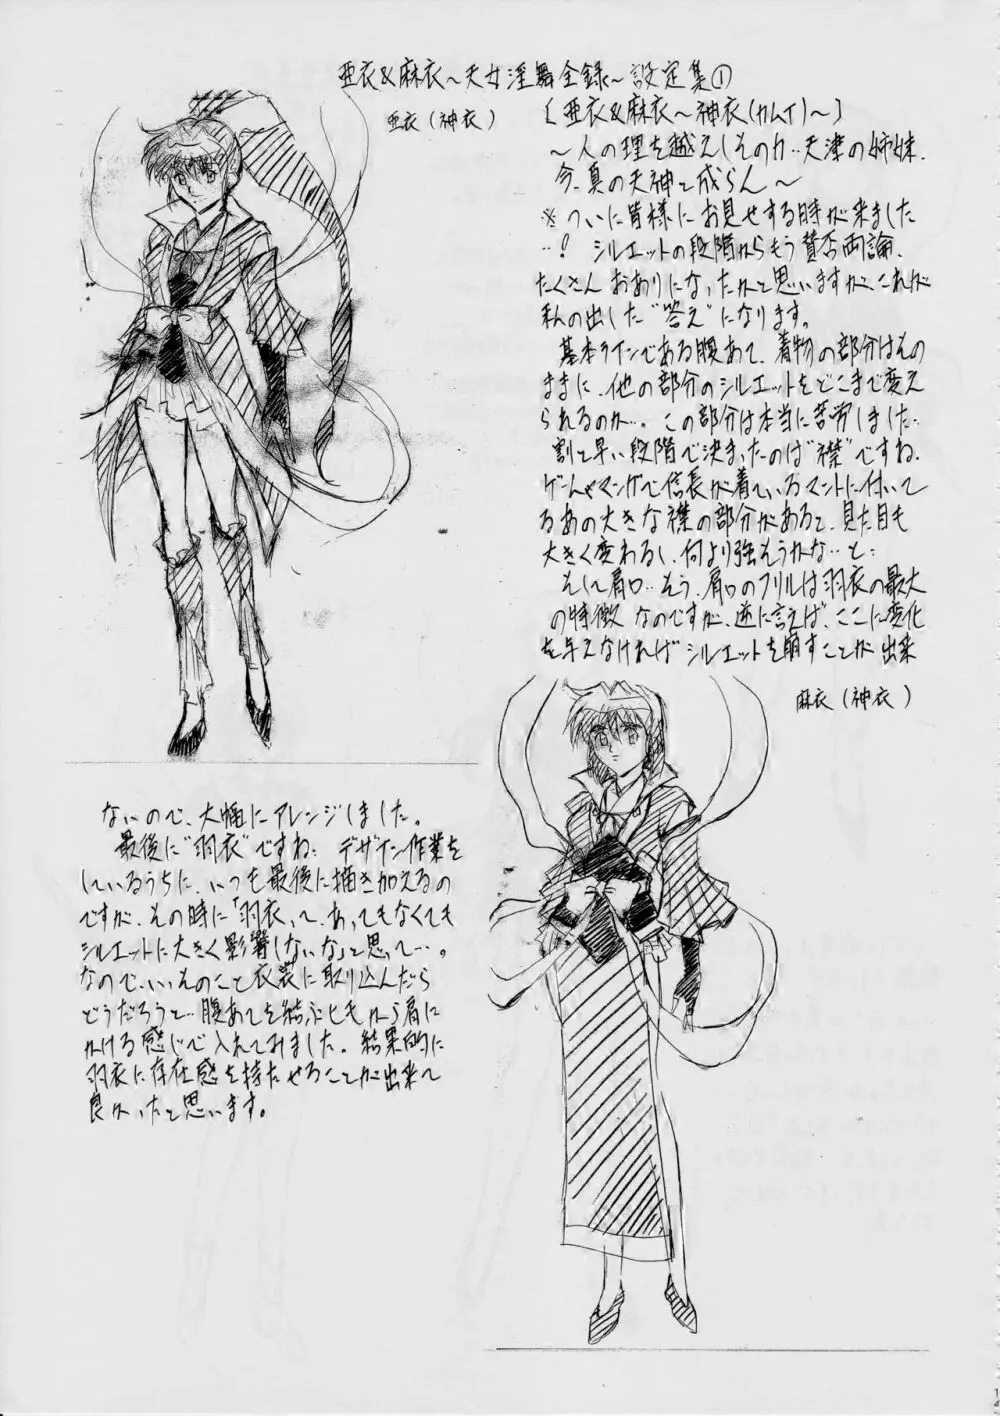 亜衣&麻衣~天女淫舞全録~設定集①
亜衣(神衣)
[亜衣&麻衣~神衣(カムイ)~]
~人の理を越えしその力…天津の姉妹、
今、真の天神と成らん~
※ついに皆様にお見せする時が来ました
…! シルエットの段階からもう賛否両論、
たくさんおありになったかと思いますが、これが
私の出した"答え"になります。
基本ラインである腹あて、着物の部分はその
ままに、他の部分のシルエットをどこまで変え
られるのか…。この部分は本当に苦労しました…
割と早い段階で決まったのは"襟"ですね。
ゲームやマンガで信長が着ているマントに付いて
るあの大きな襟の部分があると、見た目も
大きく変わるし、何より強そうかな…と…
そして肩口…そう、肩口のフリルは羽衣の最大
の特徴なのですが、逆に言えば、ここに変化
を与えなければシルエットを崩すことが出来
麻衣(神衣)
ないので、大幅にアレンジしました。
最後に"羽衣"ですね… デザイン作業を
しているうちに、いつも最後に描き加えるの
ですが、その時に「羽衣って、あってもなくても
シルエットに大きく影響しないな」と思って…。
なので、いいそのこと衣装に取り込んだら
どうだろうと…腹あてを結ぶヒモから肩に
かける感じで入れてみました。結果的に
羽衣に存在感を持たせることが出来て
良かったと思います。